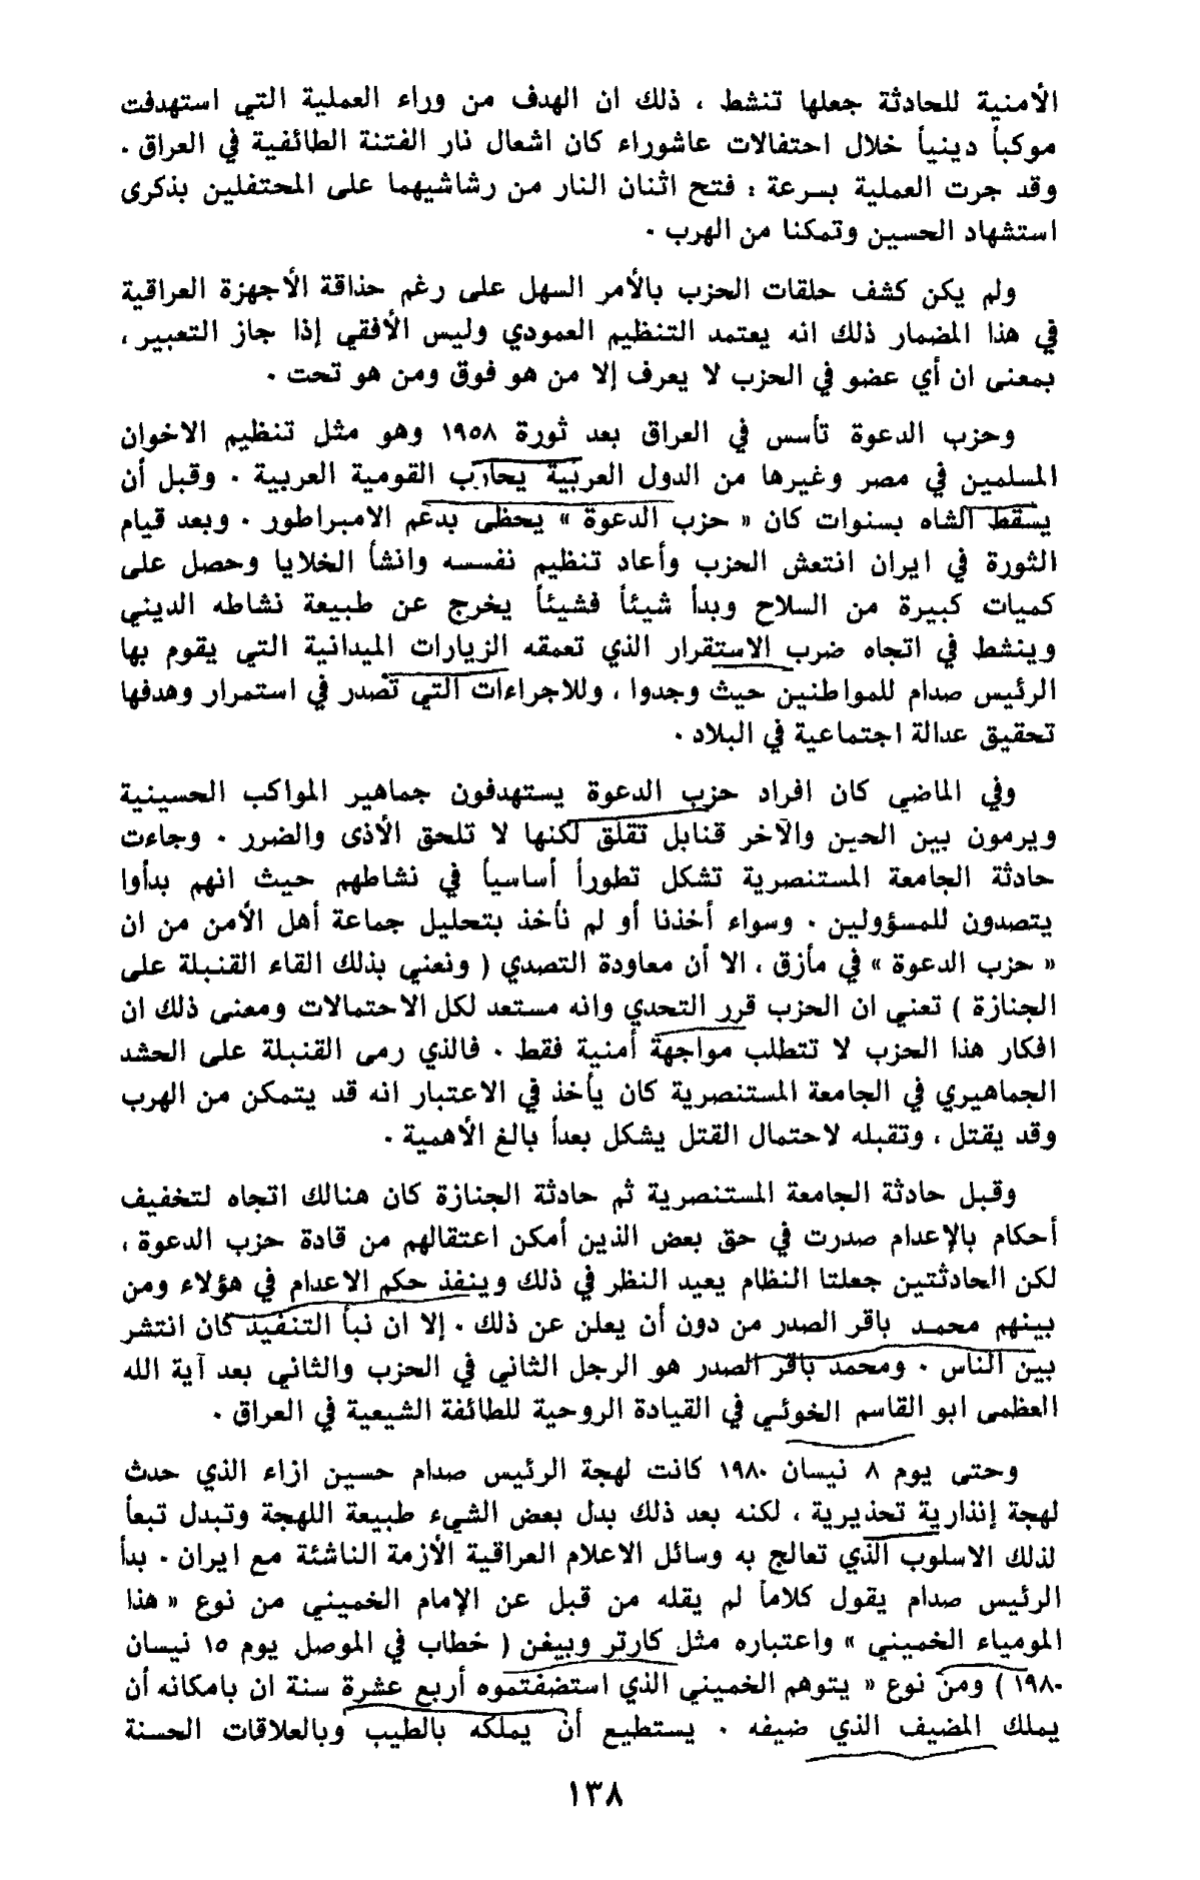 الأمنية للحادثة جعلها تنشط ، ذلك ان الهدف من وراء العملية التي استهدفت
موكباً دينياً خلال احتفالات عاشوراء كان اشعال نار الفتنة الطائفية في العراق .
وقد جرت العملية بسرعة : فتح اثنان النار من رشاشيهما على المحتفلين بذكرى
استشهاد الحسين وتمكنا من الهرب .
ولم يكن كشف حلقات الحزب بالأمر السهل على رغم حذاقة الأجهزة العراقية
في هذا المضمار ذلك انه يعتمد التنظيم العمودي وليس الأفقي إذا جاز التعبير ،
بمعنى ان أي عضو في الحزب لا يعرف إلا من هو فوق ومن هو تحت .
وحزب الدعوة تأسس في العراق بعد ثورة ١٩٥٨ وهو مثل تنظيم الاخوان
المسلمين في مصر وغيرها من الدول العربية يحارب القومية العربية . وقبل أن
يسقط الشاه بسنوات كان « حزب الدعوة » يحظى بدعم الامبراطور . وبعد قيام
الثورة في ايران انتعش الحزب وأعاد تنظيم نفسه وانشأ الخلايا وحصل على
كميات كبيرة من السلاح وبدأ شيئاً فشيئاً يخرج عن طبيعة نشاطه الديني
وينشط في اتجاه ضرب الاستقرار الذي تعمقه الزيارات الميدانية التي يقوم بها
الرئيس صدام للمواطنين حيث وجدوا ، وللاجراءات التي تصدر في استمرار وهدفها
تحقيق عدالة اجتماعية في البلاد .
وفي الماضي كان افراد حزب الدعوة يستهدفون جماهير المواكب الحسينية
ويرمون بين الحين والآخر قنابل تقلق لكنها لا تلحق الأذى والضرر . وجاءت
حادثة الجامعة المستنصرية تشكل تطوراً أساسياً في نشاطهم حيث انهم بدأوا
يتصدون للمسؤولين . وسواء أخذنا أو لم نأخذ بتحليل جماعة أهل الأمن من ان
« حزب الدعوة » في مأزق ، الا أن معاودة التصدي ( ونعني بذلك القاء القنبلة على
الجنازة ) تعني ان الحزب قرر التحدي وانه مستعد لكل الاحتمالات ومعنى ذلك ان
افكار هذا الحزب لا تتطلب مواجهة أمنية فقط . فالذي رمى القنبلة على الحشد
الجماهيري في الجامعة المستنصرية كان يأخذ في الاعتبار انه قد يتمكن من الهرب
وقد يقتل ، وتقبله لاحتمال القتل يشكل بعداً بالغ الأهمية .
وقبل حادثة الجامعة المستنصرية ثم حادثة الجنازة كان هنالك اتجاه لتخفيف
أحكام بالإعدام صدرت في حق بعض الذين أمكن اعتقالهم من قادة حزب الدعوة ،
لكن الحادثتين جعلتا النظام يعيد النظر في ذلك وينفذ حكم الاعدام في هؤلاء ومن
بينهم محمد باقر الصدر من دون أن يعلن عن ذلك . إلا ان نبأ التنفيذ كان انتشر
بين الناس . ومحمد باقر الصدر هو الرجل الثاني في الحزب والثاني بعد آية الله
العظمى ابو القاسم الخوئي في القيادة الروحية للطائفة الشيعية في العراق .
وحتى يوم ٨ نيسان ١٩٨٠ كانت لهجة الرئيس صدام حسين ازاء الذي حدث
لهجة إنذارية تحذيرية ، لكنه بعد ذلك بدل بعض الشيء طبيعة اللهجة وتبدل تبعاً
لذلك الاسلوب الذي تعالج به وسائل الاعلام العراقية الأزمة الناشئة مع ايران . بدأ
الرئيس صدام يقول كلاماً لم يقله من قبل عن الإمام الخميني من نوع « هذا
المومياء الخميني » واعتباره مثل كارتر وبيغن ( خطاب في الموصل يوم ١٥ نيسان
١٩٨٠ ) ومن نوع « يتوهم الخميني الذي استضفتموه أربع عشرة سنة ان بامكانه أن
يملك المضيف الذي ضيفه . يستطيع أن يملكه بالطيب وبالعلاقات الحسنة
١٣٨